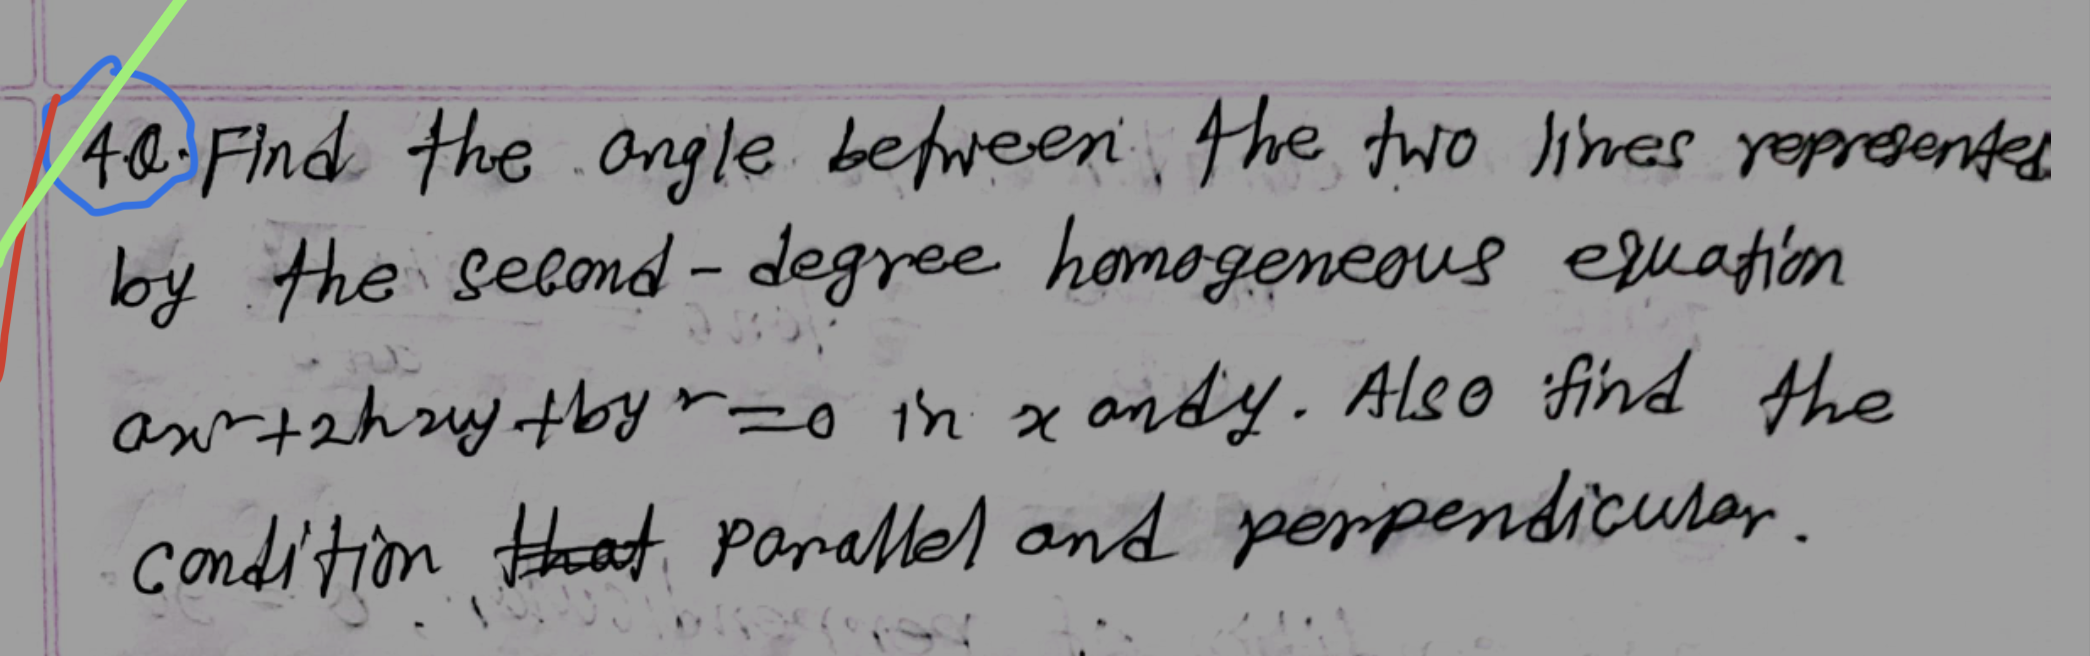 4.Q. Find the angle between the two lines represented
by the second-degree homogeneous equation
ax²+2hxy+by²=0 in x and y. Also find the
condition that parallel and perpendicular.